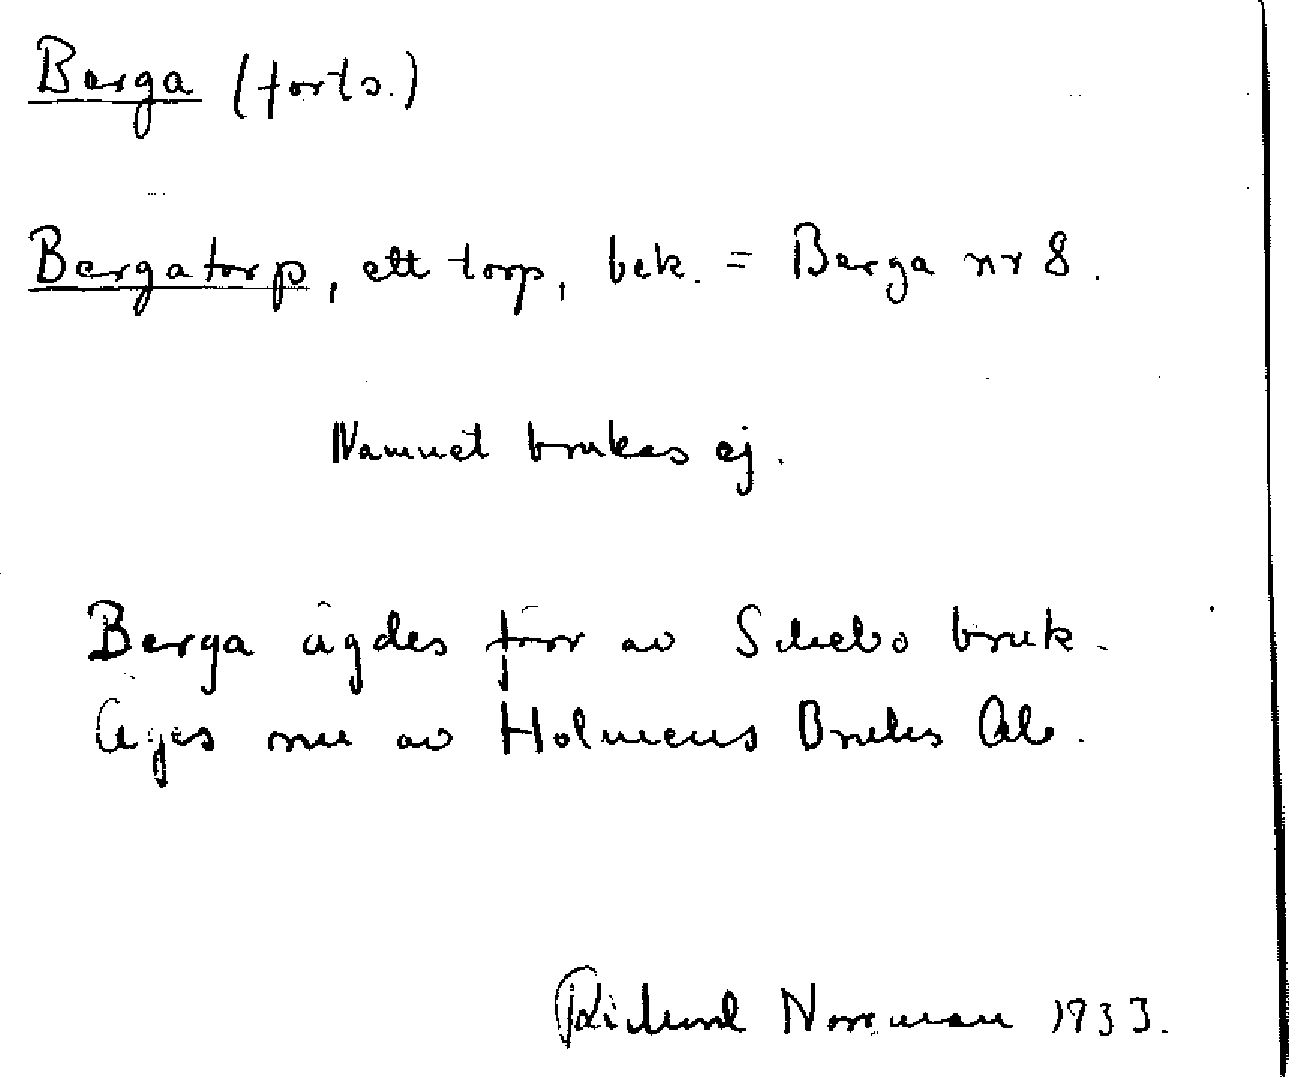 Berga (forts.)
Bergatorp, ett torp, bek. = Berga nr 8.
Namnet brukas ej.
Berga ägdes förr av Skebo bruk.
Äges nu av Holmens Bruks Ab.
Rickard Norrman 1933.